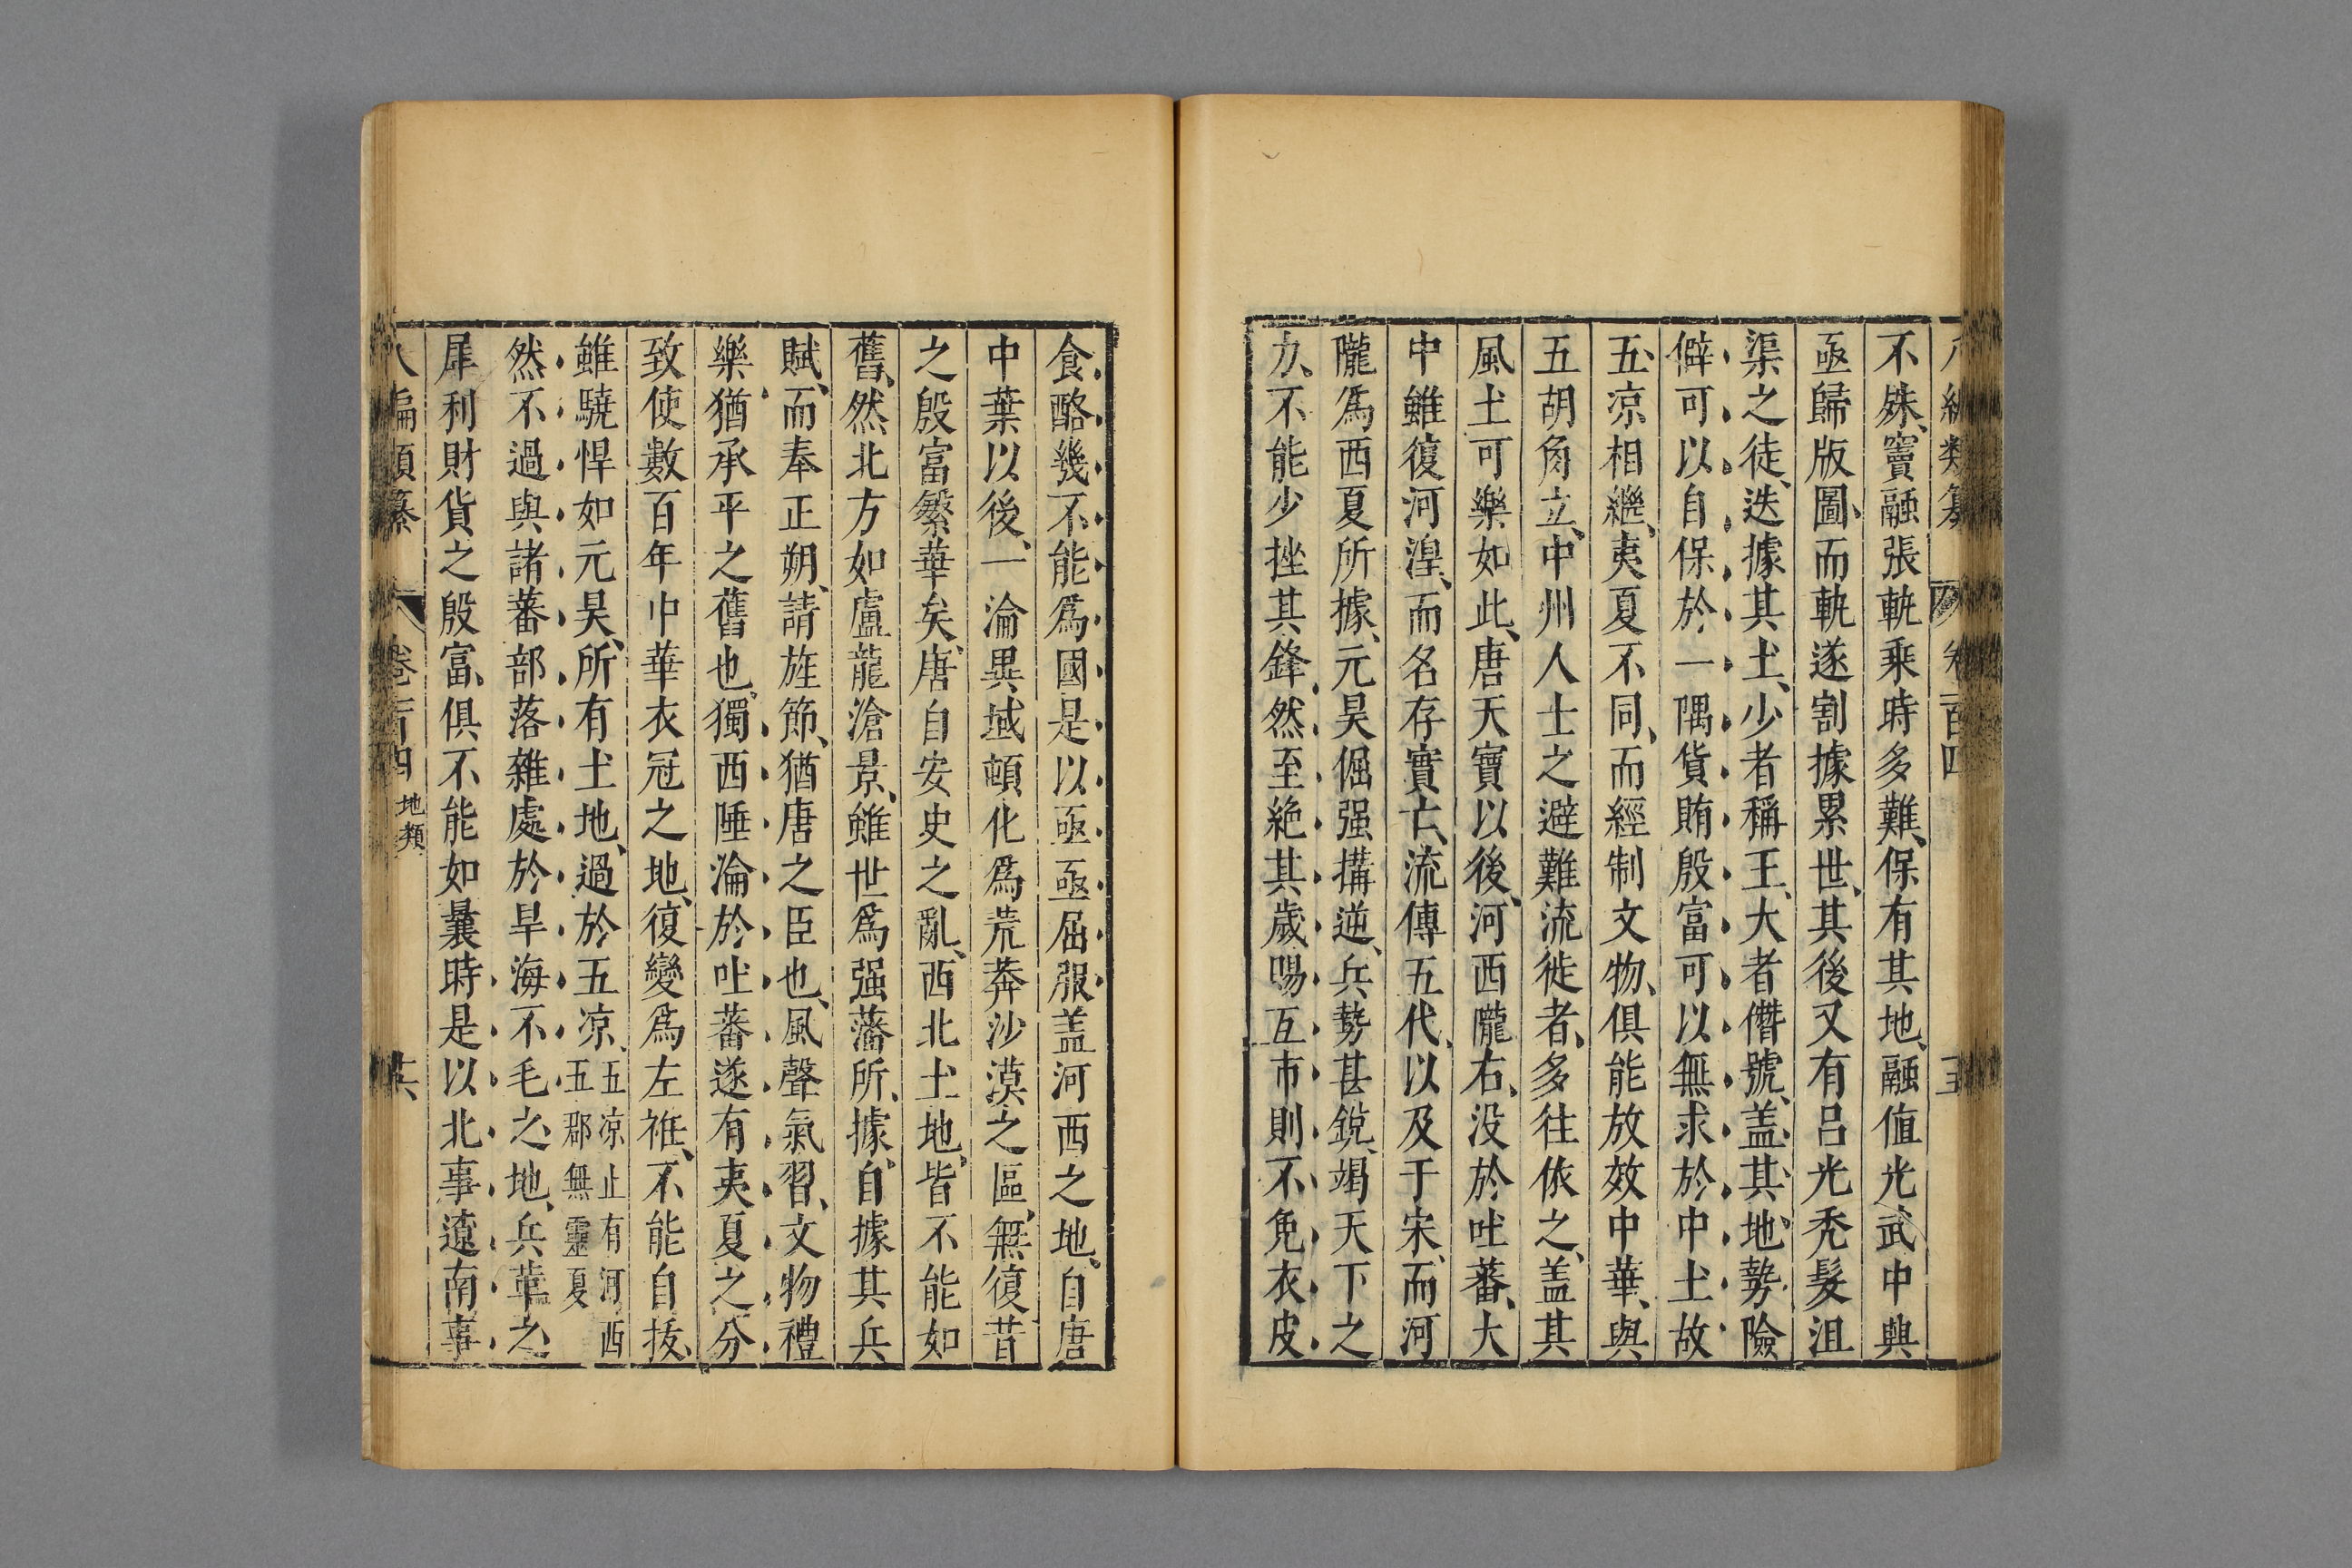 不殊、竇融張軌乘時多難、保有其地、融值光武中興
亟歸版圖、而軌遂割據累世、其後又有呂光禿髮沮
渠之徒、迭據其土、少者稱王、大者僭號、盖其地勢險
僻可以自保於一隅貨賄殷富可以無求於中土故
五凉相繼、夷夏不同、而經制文物、俱能放效中華、與
五胡角立、中州人士之避難流徙者、多往依之、盖其
風土可樂如此、唐天寶以後、河西隴右、没於吐蕃、大
中雖復河湟、而名存實亡、流傳五代、以及于宋、而河
隴爲西夏所據、元昊倔强搆逆、兵勢甚銳、竭天下之
力、不能少挫其鋒、然至絶其歲賜互市則不免衣皮
食酪幾不能爲國是以亟亟屈服盖河西之地、自唐
中葉以後、一淪異域頓化爲荒莽沙漠之區、無復昔
之殷富繁華矣、唐自安史之亂、西北土地、皆不能如
舊、然北方如盧龍滄景、雖世爲强藩所據、自據其兵
賦、而奉正朔、請旌節、猶唐之臣也、風聲氣習、文物禮
樂、猶承平之舊也、獨西陲淪於吐蕃遂有夷夏之分
致使數百年中華衣冠之地、復變爲左袵、不能自拔、
雖驍悍如元昊、所有土地、過於五凉、五凉止有河西五郡無靈夏
然不過與諸蕃部落雜處於旱海不毛之地、兵革之
犀利財貨之殷富、俱不能如曩時是以北事遼南事
八編類纂 卷百四 地類